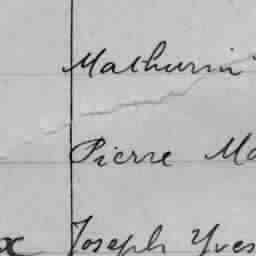 Mathurin
Pierre Ma
x Joseph Yves